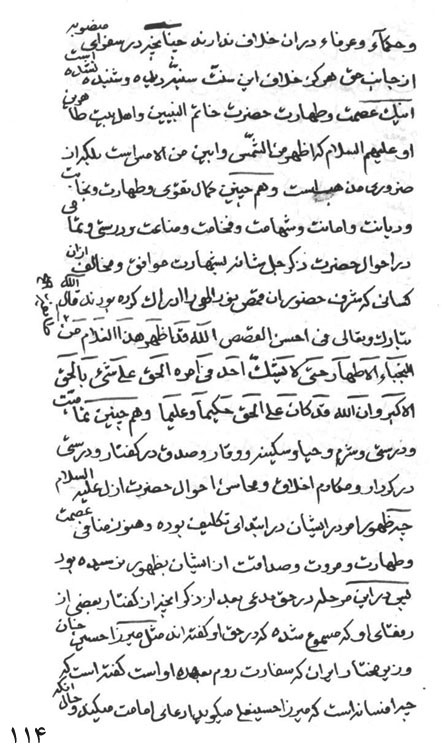 و حکماء و عرفاء در ان خلاف ندارند چنانچه در سفرای منصوبه
از جانب حق هرگز خلاف این سنت سنیه دیده و شنیده نشده است
اینک عصمت و طهارت حضرت خاتم النبیین و اهل بیت طاهرین
او علیهم السلام که اظهر من الشمس و ابین من الامس است بلکه از
ضروری مذهب است و همچنین کمال تقوی و طهارت و نجابت
و دیانت و امانت و شهامت و فخامت و مناعت و درستی و تمامی
در احوال حضرت ذکر جل شانه بشهادت موافق و مخالف از ان
کسانی که شرف حضور ان قمص نور الهی را ادراک کرده بودند قال الله
تبارک و تعالی فی احسن القصص الله قد اظهر هذا الغلام من
النجباء الاطهار حتی لا یشک احد فی امره الحق علی شیء بالحق
الاکبر و ان الله قد کان علی الحق حکیما و علیما و همچنین تمامیت
و درستی و شرم و حیا و سکینه و وقار و صدق در گفتار و درستی
در کردار و مکارم اخلاق و محاسن احوال حضرت ازل علیه السلام
چه ظهور امر در ایشان در ابتدای تکلیف بوده و هنوز منافی عصمت
و طهارت و مروت و صداقت از ایشان بظهور نرسیده بود
پس در این مرحله در حق مدعی بعد از ذکر آنچه از گفتار بعضی از
رفقای او که مسموع شده که در حق او گفته اند مثل میرزا حسین خان
وزیر مختار ایران که سفارت روم بعهده او است گفته است که
چه افسانه است که میرزا حسینعلی میگوید ادعای امامت میکند و حال انکه
۱۱۴